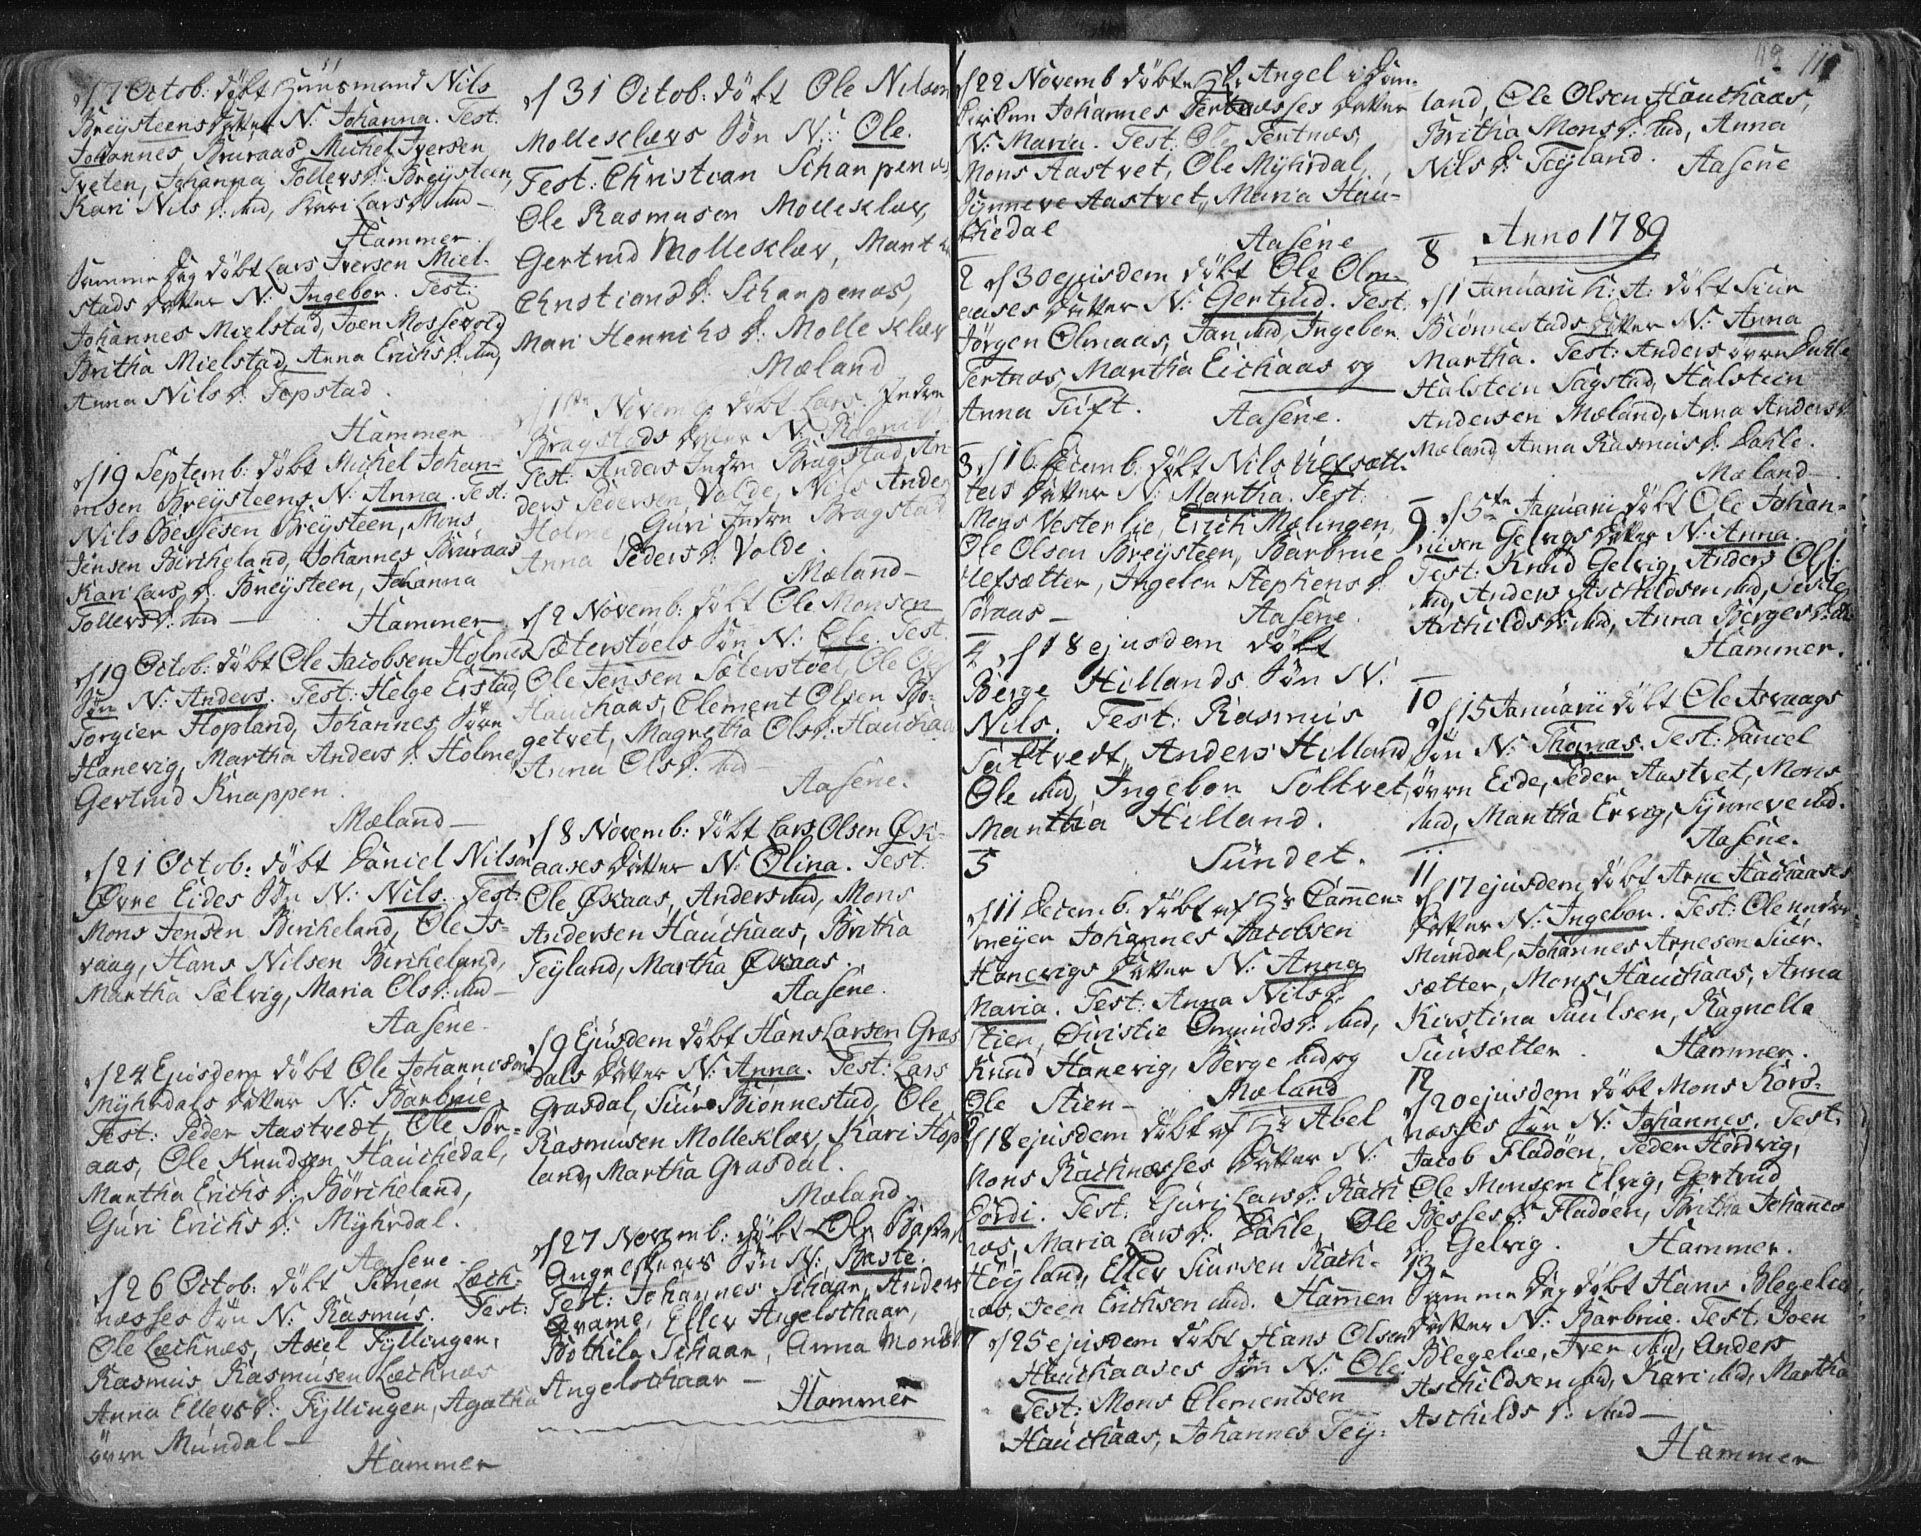 d 17 Octob: døbt Huusmand Nils
Breÿsteens datter N: Johanna. Test:
Johannes Bruraas Michel Iversen
Tveten, Johanna Tollevs d: Breÿsteen,
Kari Nils d: ibid, Kari Lars d: ibid —
Hammer.
Samme Dag døbt Lars Iversen Miel-
stads datter N: Ingebor. Test:
Johannes Mielstad, Joen Mossevold
Britha Mielstad, Anna Erichs d: ibid,
Anna Nils d: Topstad.
Hammer
d 19 Septemb: døbt Michel Johan-
nesen Breÿsteens N: Anna. Test:
Nils Bessesen Breÿsteen, Mons
Jensen Bircheland, Johannes Bruraas
Kari Lars d: Breÿsteen, Johanna
Tollevs d: ibid — Hammer
d 19 Octob: døbt Ole Jacobsen Holmes
Søn N: Anders. Test: Helge Erstad,
Torgier Hopland, Johannes Søre
Hanevig, Martha Anders d: Holme,
Gertrud Knappen.
Mæland —
d 21 Octob: døbt Daniel Nilsen
Øvre Eides Søn N: Nils. Test:
Mons Jensen Bircheland, Ole Is-
vaag, Hans Nilsen Bircheland,
Martha Sælvig, Maria Ols d: ibid —
Aasene.
d 24 Ejusdem døbt Ole Johannesen
Mÿhrdals datter N: Barbrue
Test: Peder Aastvedt, Ole Sør-
aas, Ole Knudsen Hauchedal,
Martha Erichs d: Børcheland,
Guri Erichs d: Mÿhrdal.
Aasene.
d 26 Octob: døbt Simen Lech-
nesses Søn N: Rasmus. Test:
Ole Lechnæs, Axel Fÿllingen,
Rasmus Rasmusen Lechnæs
Anna Ellevs d: Fÿllingen, Agatha
øvre Mundal —
Hammer
d 31 Octob: døbt Ole Nilsen
Molleklævs Søn N: Ole.
Test: Christian Scharpenæs,
Ole Rasmusen Molleklæv,
Gertrud Molleklæv, Martha
Christians d: Scharpenæs,
Mari Henrichs d: Molleklæv
Mæland
d 1ste Novemb: døbt Lars Indre
Bragstads datter N: Ragnil.
Test: Anders Indre Bragstad, An-
ders Pedersen Valde, Nils Anders
Holme, Guri Indre Bragstad
Anna Peders d: Valde
Mæland —
d 2 Novemb: døbt Ole Monsen
Sæterstøels Søn N: Ole. Test.
Ole Jensen Sæterstøel, Ole Ols
Hauchaas, Clement Olsen Bør-
getvet, Magretha Ols d: Hauchaas
Anna Ols d: ibid —
Aasene.
d 8 Novemb: døbt Lars Olsen Øxi-
aases datter N: Olina. Test:
Ole Øxaas, Anders ibid, Mons
Andersen Hauchaas, Britha
Teÿland, Martha Øxaas.
Aasene.
d 9 Ejusdem døbt Hans Larsen Gras
dals datter N: Anna. Test: Lars
Grasdal, Siur Biønnestad, Ole
Rasmusen Molleklæv, Kari Hop
land, Martha Grasdal.
Mæland
d 27 Novemb: døbt Ole Baste
Angelschars Søn N: Baste.
Test: Johannes Schaar, Anders
Qvame, Ellev Angelschaar,
Bothila Schaar, Anna Mons d:
Angelschaar —
Hammer
d 22 Novemb døbte Hr. Angel i Ham-
Kirken Johannes Tertnæsses datter
N: Maria. Test: Ole Tertnæs,
Mons Aastvet, Ole Mÿhrdal,
Sÿnneve Aastvet, Maria Hau-
chedal
Aasene
2 d 30 ejusdem døbt Ole Olm-
aases datter N: Gertrud. Test:
Jørgen Olmaas, Jan ibid, Ingebor
Tertnæs, Martha Eichaas og
Anna Tuft. Aasene.
3 d 16 Decemb: døbt Nils Ulfsætt-
ters datter N: Martha. Test:
Mons Vesterlie, Erich Mælingen,
Ole Olsen Breÿsteen, Barbrue
Ulfsætter, Ingebor Stephens d:
Søraas — Aasene.
4 d 18 ejusdem døbt
Berge Hillands Søn N:
Nils. Test: Rasmus
Saltvedt, Anders Hilland,
Ole ibid, Ingebor Soltvet,
Martha Hilland.
5 Sundet.
d 11 Decemb. døbt af Hr Dammen-
meÿer Johannes Jacobsen
Hanevigs datter N: Anna
Maria. Test: Anna Nils d:
Stien, Christie Omunds d: ibid,
Knud Hanevig, Berge ibid og
Ole Stien — Mæland
d 18 ejusdem døbt af Hr Abel
Mons Rachnesses datter N:
Bordi. Test: Guri Lars d: Rach
næs, Maria Lars d: Dahle, Ole
Høÿland, Ellev Siursen Rach-
næs, Joen Erichsen ibid. Hammer
d 25 ejusdem døbt Hans Olsen
Hauchaases Søn N: Ole
Test: Mons Clementsen
Hauchaas, Johannes Teÿ-
119 111
land, Ole Olsen Hauchaas,
Britha Mons d: ibid, Anna
Nils d: Teÿland. Aasene
Anno 1789
8
d 1 Januarii h: A: døbt Siur
Biønnestads datter N: Anna
Martha. Test: Anders øvre Dahle
Halsteen Sagstad, Halsteen
Andersen Mæland, Anna Anders d:
Mæland Anna Rasmus d: Dahle.
Mæland —
9 d 5te Januarii døbt Ole Johan-
nisen Gelvigs datter N: Anna.
Test: Knud Gelvig, Anders Ols:
ibid, Anders Aschildsen ibid,
Aschilds d: ibid, Anna Børges d: ibid
Hammer.
10
d 15 Januarii døbt Ole Isvaags
Søn N: Thomas. Test: Daniel
øvre Eide, Peder Aastvet, Mons
ibid, Martha Ervig, Sÿnneve ibid.
Aasene.
11
d 17 ejusdem døbt Arne Hauchaases
datter N: Ingebor. Test: Ole nedre
Mundal, Johannes Arnesen Siur-
sætter, Mons Hauchaas, Anna
Kirstina Paulsen, Ragnella
Siursætter. Hammer.
12
d 20 ejusdem døbt Mons Kors-
næsses Søn N: Johannes. Test:
Jacob Fladøen, Peder Hordvig,
Ole Monsen Elvig, Gertrud
Besses d: Fladøen, Britha Johannes
d: Gelvig. Hammer.
13
Samme Dag døbt Hans Blegelies
datter N: Barbrue. Test: Joen
Blegelie, Iver ibid, Anders
Aschildsen ibid, Kari ibid, Martha
Aschilds d: ibid —
Hammer